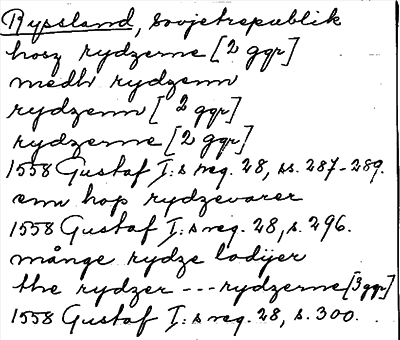 Ryssland, Sovjetrepublik
hosz rydzerne [2 ggr]
medh rydzenn
rydzenn [2 ggr]
rydzerne [2 ggr]
1558 Gustaf I:s reg. 28, ss. 287-289.
enn hop rydzevarer
1558 Gustaf I:s reg. 28, s. 296.
månge rydze lodijer
the rydzer --- rydzerne [3 ggr]
1558 Gustaf I:s reg. 28, s. 300.